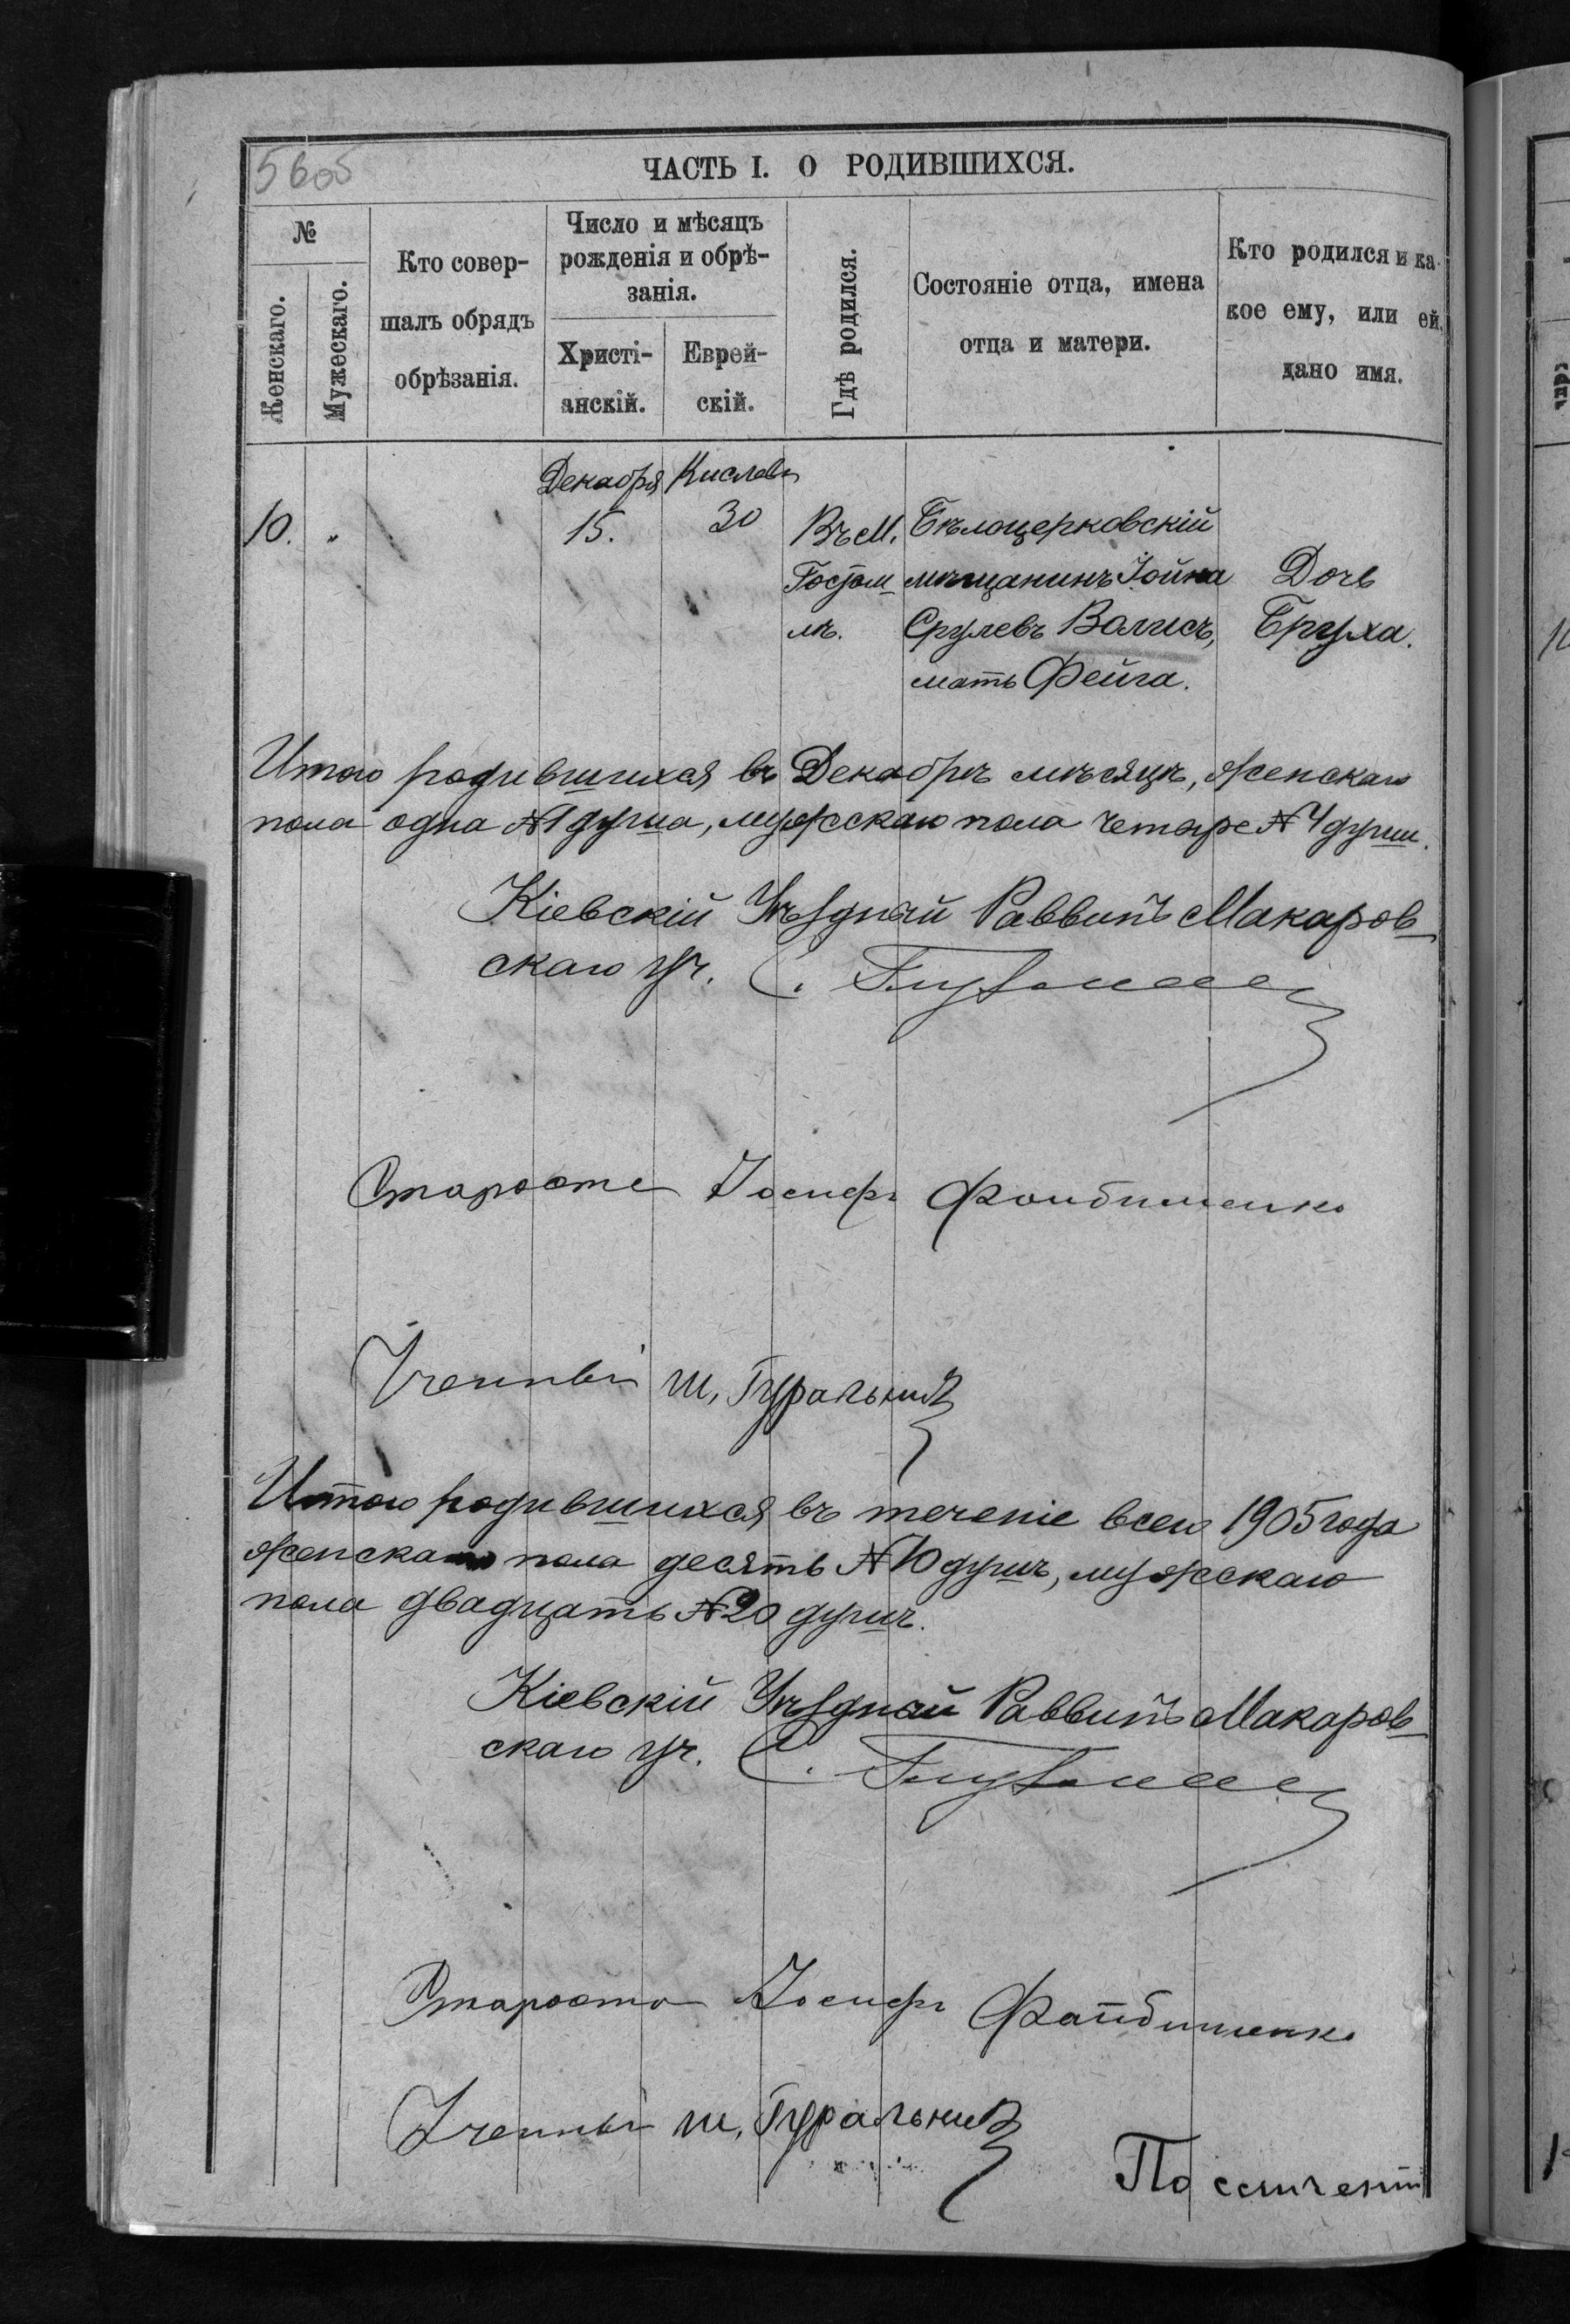 560б
ЧАСТЬ I. О РОДИВШИХСЯ.
№
Женскаго.
Мужескаго.
Кто совер-
шалъ обрядъ
обрѣзанія.
Число и мѣсяцъ
рожденія и обрѣ-
занія.
Христі-
анскій.
Еврей-
скій.
Гдѣ родился.
Состояніе отца, имена
отца и матери.
Кто родился и ка-
кое ему, или ей,
дано имя.
Декабря Кислева
10. „ 15. 30 Въ М. Бѣлоцерковскій
Гостом мѣщанинъ Іойна Дочь
лѣ. Срулевъ Волисъ, Бруха.
мать Фейга.
Итого родившихся въ Декабрѣ мѣсяцѣ, женскаго
пола одна № 1 душа, мужскаго пола четыре № 4 души.
Кіевскій Уѣздный Раввинъ Макаров
скаго уч.
Старосте Іосифъ Фаибишенко
Ученный Ш, Гуральник
Итого родившихся въ теченіе всего 1905 года
женскаго пола десять № 10 душъ, мужскаго
пола двадцать № 20 душъ.
Кіевскій Уѣздный Раввинъ Макаров
скаго уч.
Староста Іосифъ Файбишенко
Ученный Ш, Гуральник
По